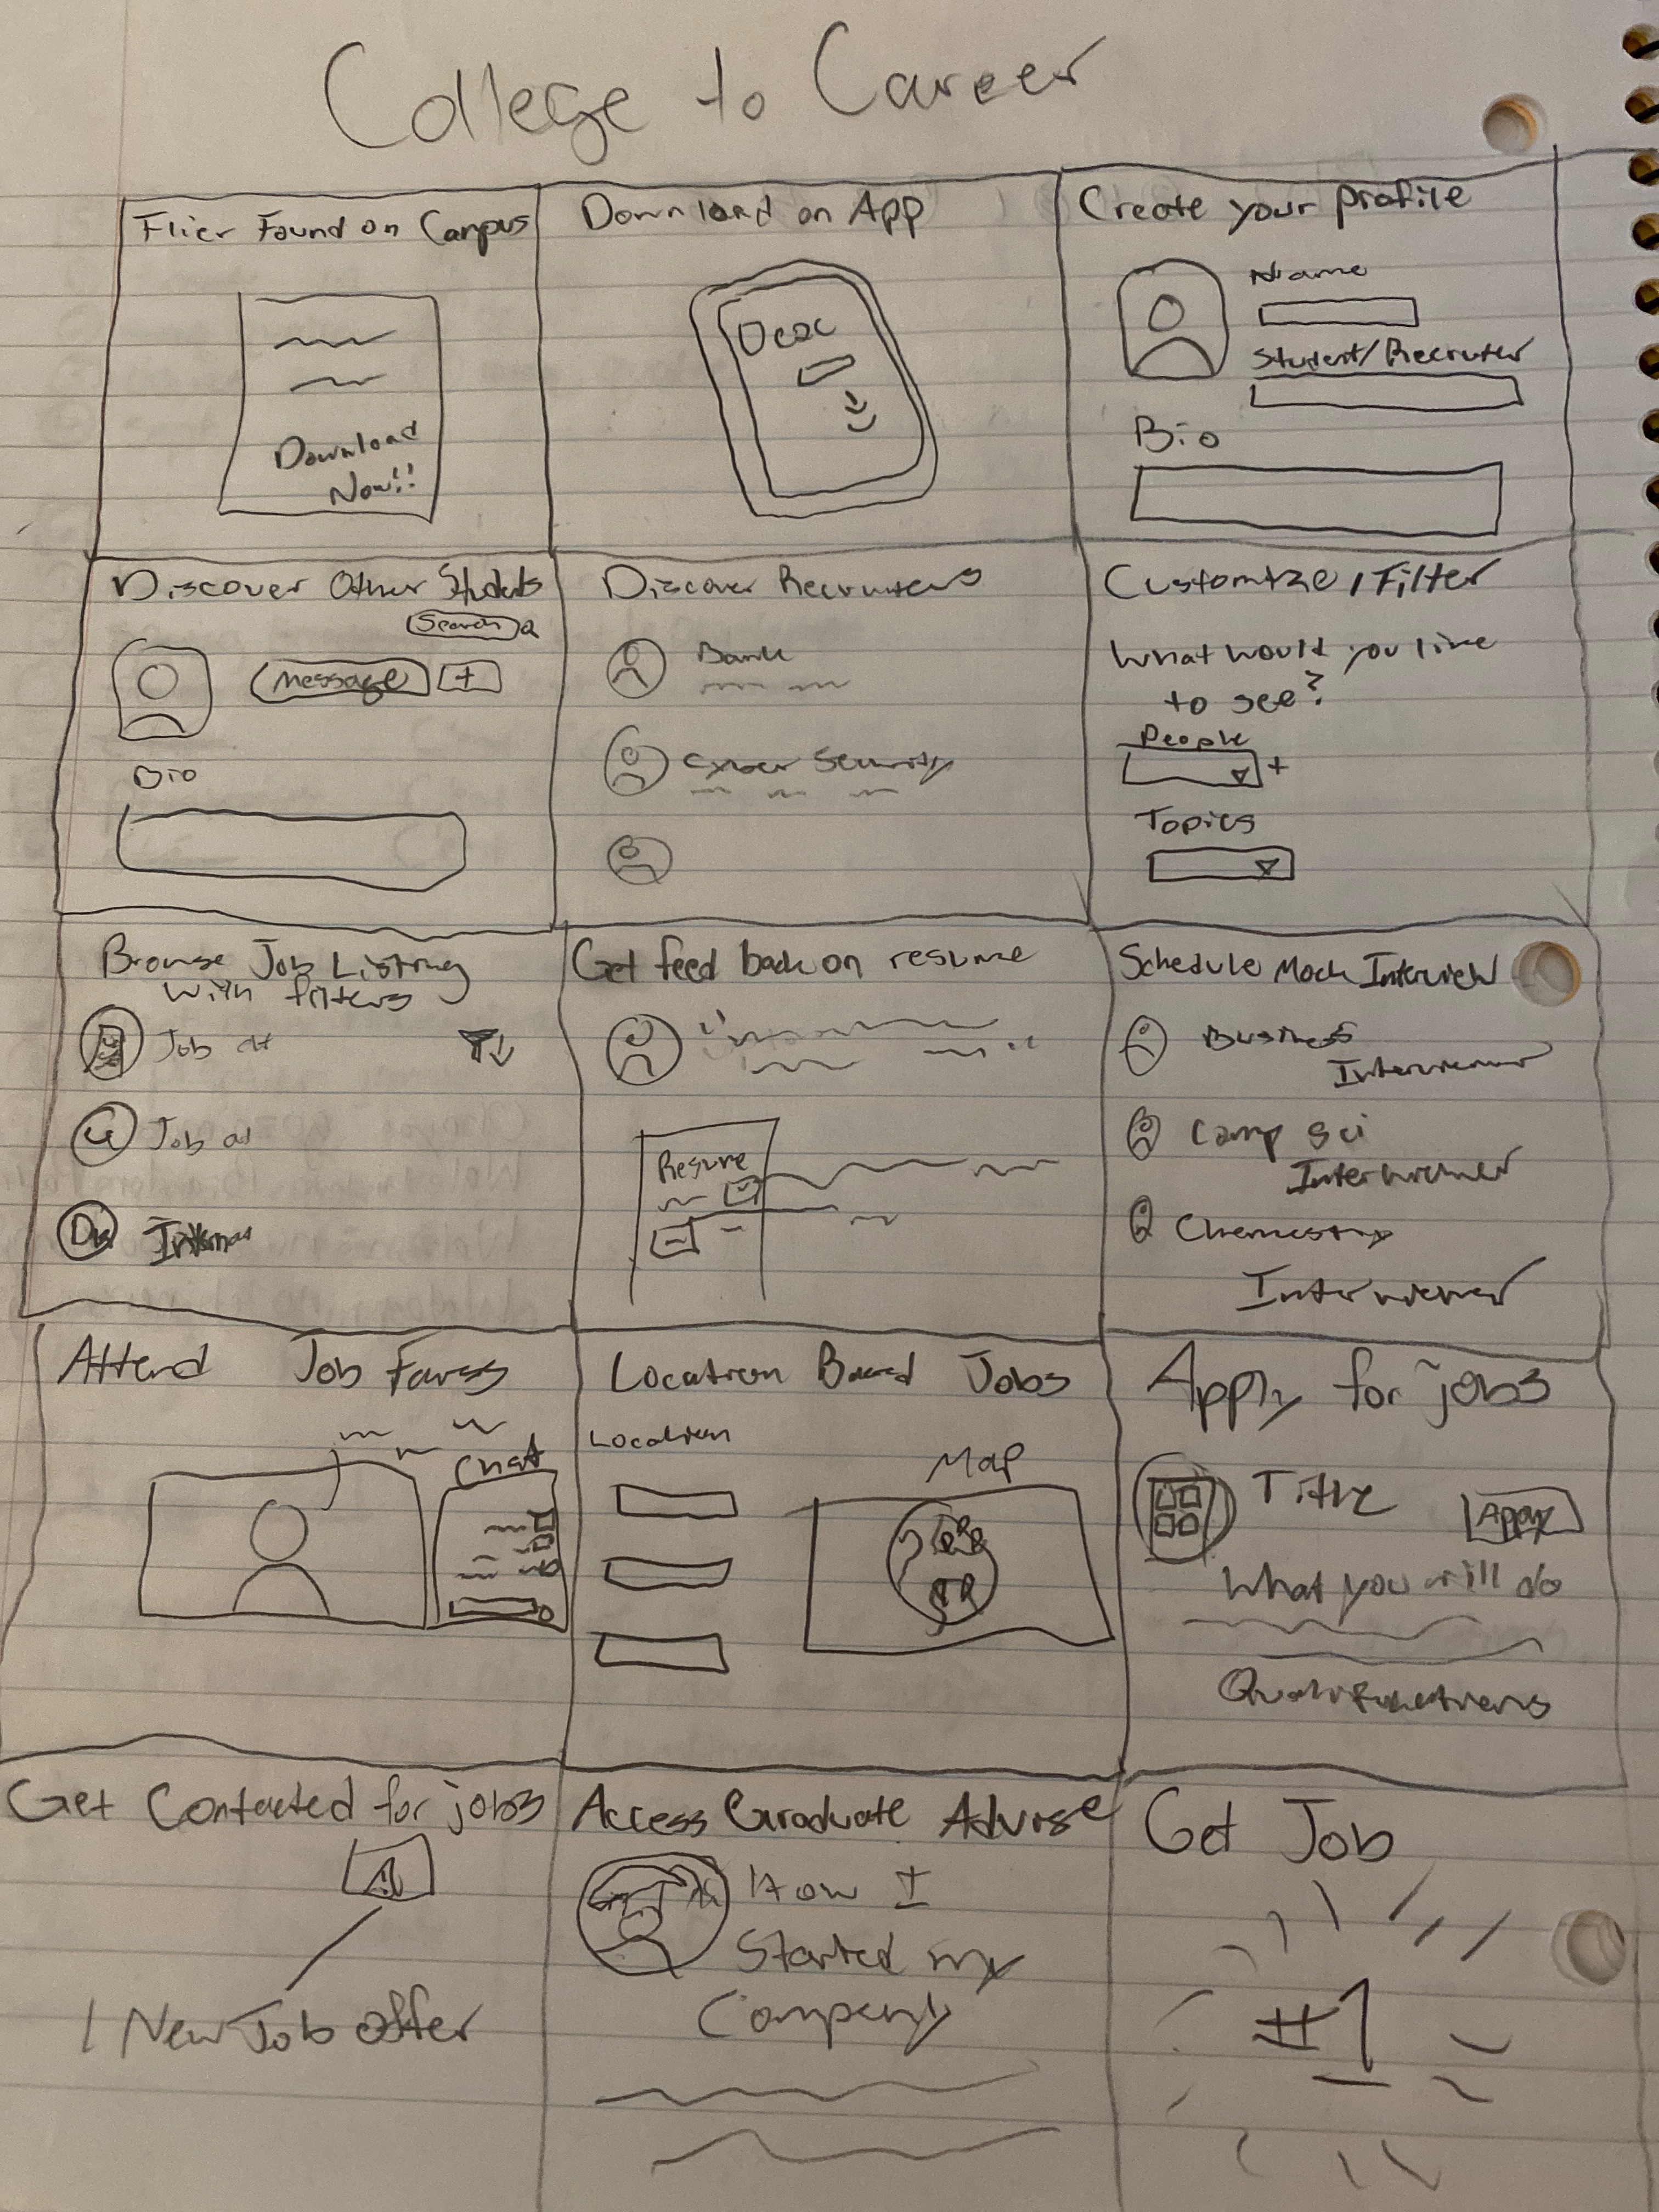 College to Career
Flier Found on Campus
Download
Now!!
Download on App
Create your profile
Name
Student/Recruiter
Bio
Discover Other Students
Search
Message +
Bio
Discover Recruiters
Bank
Cyber Security
Customize / Filter
What would you like
to see?
People
+
Topics
Browse Job Listing
with filters
Job at
Job at
Get feed back on resume
Resume
Schedule Mock Interview
Business
Interviewer
Comp Sci
Interviewer
Chemestry
Interviewer
Attend Job Fares
Chat
Location Based Jobs
Location
Map
Apply for jobs
Title
Apply
What you will do
Qualifications
Get Contacted for jobs
1 New Job offer
Access Graduate Advise
How I
Started my
Company
Get Job
#1